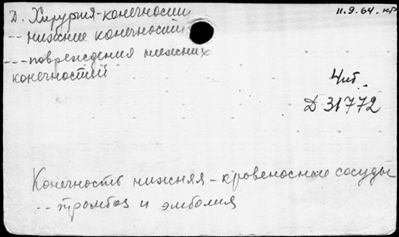 Д. Хирургия-конечности
11.9.64.
-- нижние конечности
--- повреждения нижних
конечностей
Чит.
Д 31772
Конечность нижняя - кровеносные сосуды
-- тромбоз и эмболия